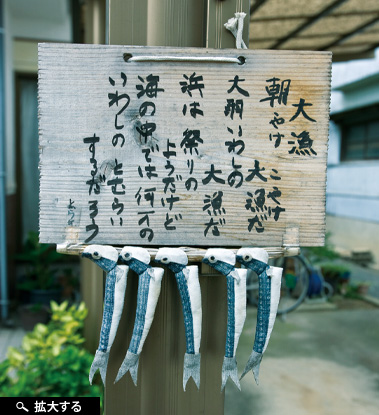 大漁
朝やけ こやけ
大漁だ
大羽いわしの
大漁だ
浜は祭りの
ようだけど
海の中では何万の
いわしの とむらい
するだろう
拡大する